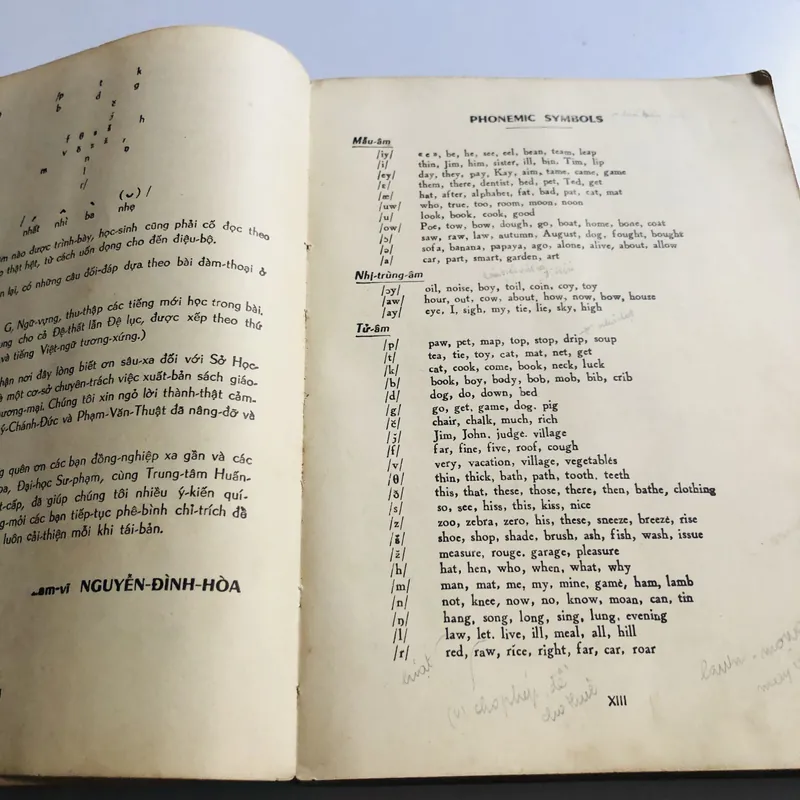 /p t k
b d g
č
j h
f θ s š
v ð z ž
n
m l
r/
(⌣) /
nhất nhì ba nhọ
m nào được trình-bày, học-sinh cũng phải cố đọc theo
thật hệt, từ cách uốn dọng cho đến điệu-bộ.
n lại, có những câu đối-đáp dựa theo bài đàm-thoại ở
G, Ngữ-vựng, thu-thập các tiếng mới học trong bài.
ung cho cả Đệ-thất lẫn Đệ lục, được xếp theo thứ
và tiếng Việt-ngữ tương-xứng.)
hận nơi đây lòng biết ơn sâu-xa đối với Sở Học-
à một cơ-sở chuyên-trách việc xuất-bản sách giáo-
ương-mại. Chúng tôi xin ngỏ lời thành-thật cảm-
ý-Chánh-Đức và Phạm-Văn-Thuật đã nâng-đỡ và
g quên ơn các bạn đồng-nghiệp xa gần và các
oa, Đại-học Sư-phạm, cùng Trung-tâm Huấn-
t-cấp, đã giúp chúng tôi nhiều ý-kiến quí-
g-mỏi các bạn tiếp-tục phê-bình chỉ-trích để
luôn cải-thiện mỗi khi tái-bản.
am-vi NGUYỄN-ĐÌNH-HÒA
PHONEMIC SYMBOLS
Mẫu-âm
/iy/ « e », be, he, see, eel, bean, team, leap
/i/ thin, Jim, him, sister, ill, bin. Tim, lip
/ey/ day, they, pay, Kay, aim, tame. came, game
/ɛ/ them, there, dentist, bed, pet, Ted, get
/æ/ hat, after, alphabet, fat, bad, pat, cat, mat
/uw/ who, true, too, room, moon, noon
/u/ look, book, cook, good
/ow/ Poe, tow, bow, dough, go, boat, home, bone, coat
/ɔ/ saw, raw, law, autumn, August, dog, fought, bought
/ə/ sofa, banana, papaya, ago, alone, alive, about, allow
/a/ car, part, smart, garden, art
Nhị-trùng-âm
/ɔy/ oil, noise, boy, toil, coin, coy, toy
/aw/ hour, out, cow, about, how, now, bow, house
/ay/ eye, I, sigh, my, tie, lie, sky, high
Tử-âm
/p/ paw, pet, map, top, stop, drip, soup
/t/ tea, tie, toy, cat, mat, net, get
/k/ cat, cook, come, book, neck, luck
/b/ book, boy, body, bob, mob, bib, crib
/d/ dog, do, down, bed
/g/ go, get, game, dog. pig
/č/ chair, chalk, much, rich
/ǰ/ Jim, John, judge. village
/f/ far, fine, five, roof, cough
/v/ very, vacation, village, vegetables
/θ/ thin, thick, bath, path, tooth, teeth
/ð/ this, that, these, those, there, then, bathe, clothing
/s/ so, see, hiss, this, kiss, nice
/z/ zoo, zebra, zero, his, these, sneeze, breeze, rise
/š/ shoe, shop, shade, brush, ash, fish, wash, issue
/ž/ measure, rouge, garage, pleasure
/h/ hat, hen, who, when, what, why
/m/ man, mat, me, my, mine, game, ham, lamb
/n/ not, knee, now, no, know, moan, can, tin
/ŋ/ hang, song, long, sing, lung, evening
/l/ law, let. live, ill, meal, all, hill
/r/ red, raw, rice, right, far, car, roar
XIII